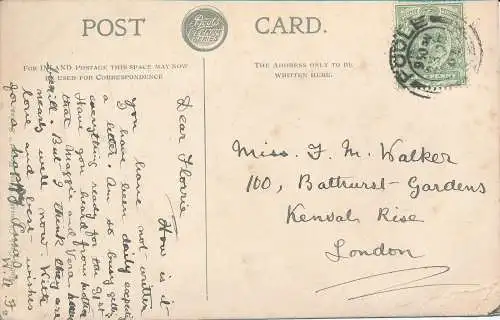 POST CARD.
FOR INLAND POSTAGE THIS SPACE MAY NOW
BE USED FOR CORRESPONDENCE
THE ADDRESS ONLY TO BE
WRITTEN HERE.
POOLE
Dear Florrie
How is it
you have not written
have been daily
a letter. Am so busy
everything ready for the
Have you heard from
that Maggie and Vera
But I think they are
nearly well now.
love and best wishes
for a happy Xmas
Miss. F. M. Walker
100, Bathurst-Gardens
Kensal Rise
London